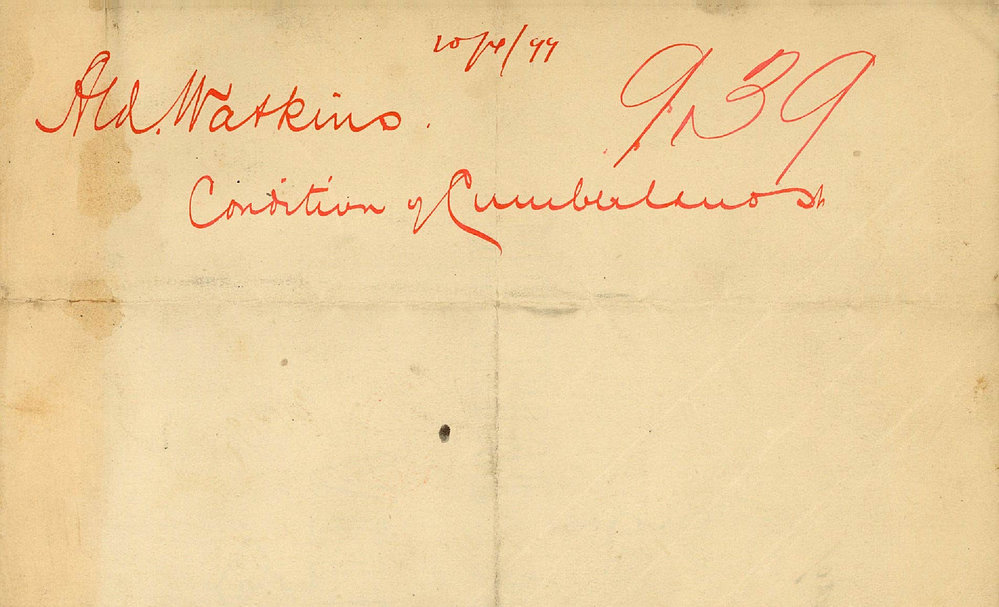 Ald. Watkins.
939
Condition of Cumberland St